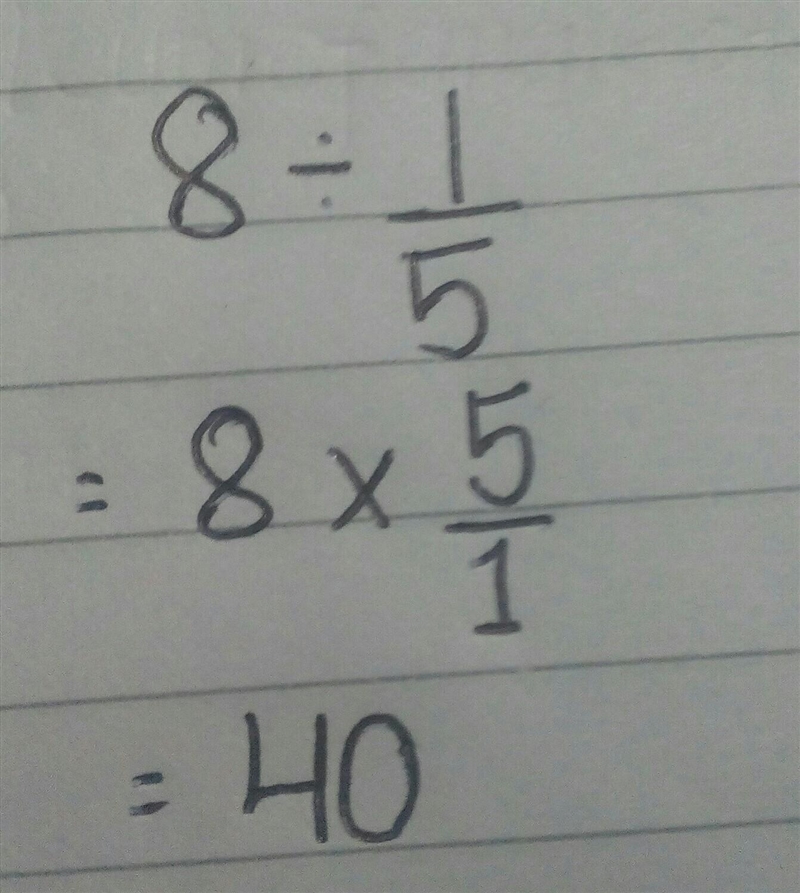 8 ÷ 1/5
= 8 × 5/1
= 40